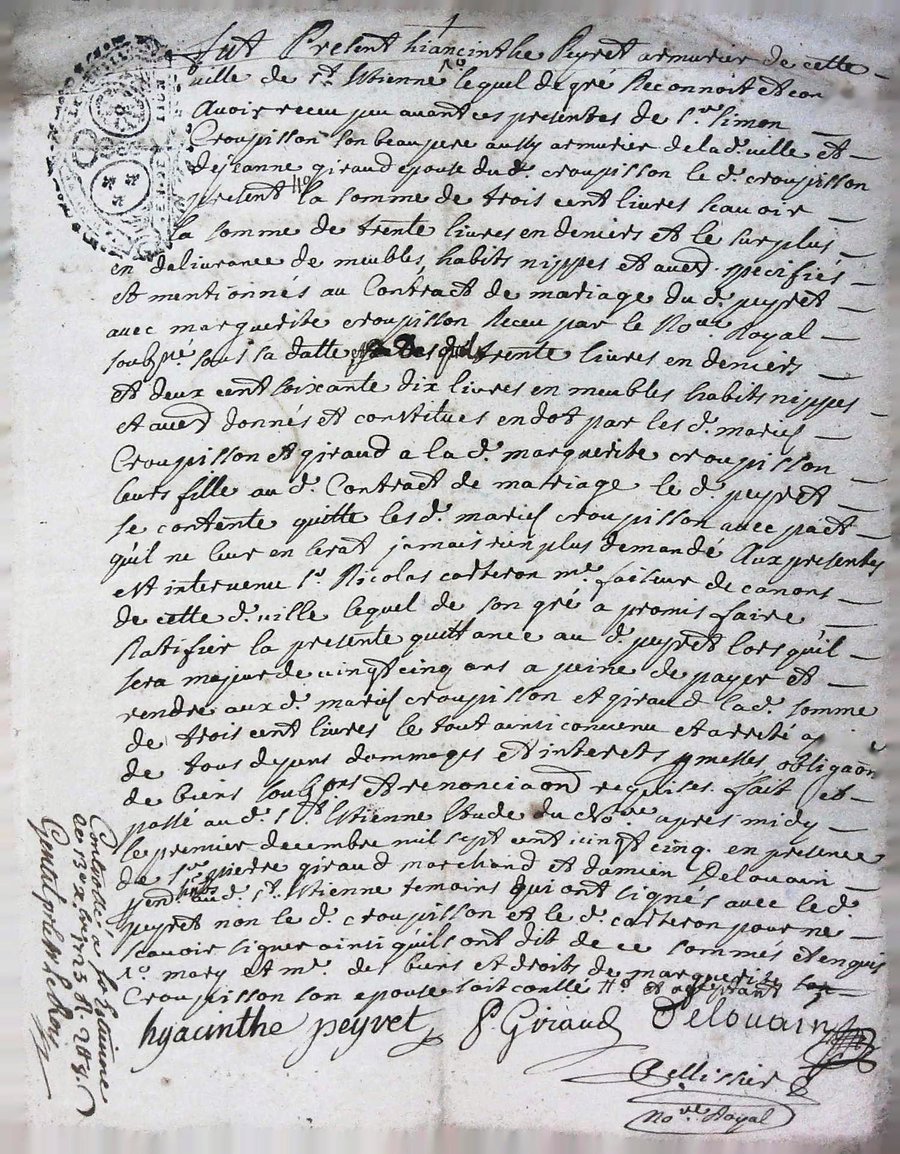 fut Present hiancinthe Peyret armurier de cette
ville de St. Etienne lequel de gré Reconnoit et con
Avoir receu peu avant ces presentes de sr. Simon
Croupisson son beaupere aussy armurier de la d. ville et
de jeanne giraud epouse du d. croupisson le d. croupisson
present la somme de trois cent livres scavoir
la somme de trente livres en deniers et le surplus
en delivrance de meubles, habits nippes et aued. specifiés
et mentionnés au Contract de mariage du d. peyret
avec marguerite croupisson Receu par le No.re Royal
soubsné. sous sa datte trente livres en deniers
et deux cent soixante dix livres en meubles habits nippes
et aued donnés et constitues en dot par les d. mariés
Croupisson et giraud a la d. marguerite croupisson
leurs fille au d. Contract de mariage le d. peyret
se contente quitte les d. mariés croupisson avec pact
qu'il ne leur en serat jamais rien plus demandé Aux presentes
est intervenu sr. Nicolas carteron me. faiseur de canons
de cette d. ville lequel de son gré a promis faire
Ratifier la presente quittance au d. peyret lors qu'il
sera majeur de vingt cinq ans a peine de payer et
rendre aux d. mariés croupisson et giraud la d. somme
de trois cent livres le tout ainsi convenu et arreté a
de tous depens dommages et interets pmesses obliga͠on
de biens soub͠ons et renoncia͠on requises fait et
passé au d. St. Etienne Etude du No.re apres midy
le premier decembre mil sept cent cinquante cinq. en presence
de sr. pierre giraud marchand et damien Delouain
au d. St. Etienne temoins qui ont signés avec le d.
peyret non le d. croupisson et le d. carteron pour ne
scavoir signer ainsi qu'ils ont dit de ce sommés et enquis
mary et me. des biens et droits de marguerite
Croupisson son epouse
hyacinthe peyret P. Giraud Delouain
Pellissier
No.re Royal
Controllé a St. Etienne